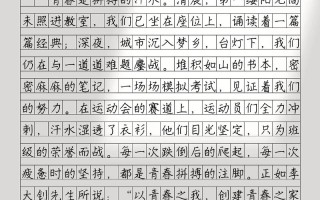 青春是拼搏的汗水。清晨，第一缕阳光尚
未照进教室，我们已坐在座位上，诵读着一篇
篇经典；深夜，城市沉入梦乡，台灯下，我们
仍在与一道道难题鏖战。堆积如山的书本，密
密麻麻的笔记，一场场模拟考试，见证着我们
的努力。在运动会的赛道上，运动员们全力冲
刺，汗水湿透了衣衫，他们目光坚定，只为班
级的荣誉而战。每一次跌倒后的爬起，每一次
疲惫时的坚持，都是青春拼搏的注脚。正如李
大钊先生所说：“以青春之我，创建青春之家